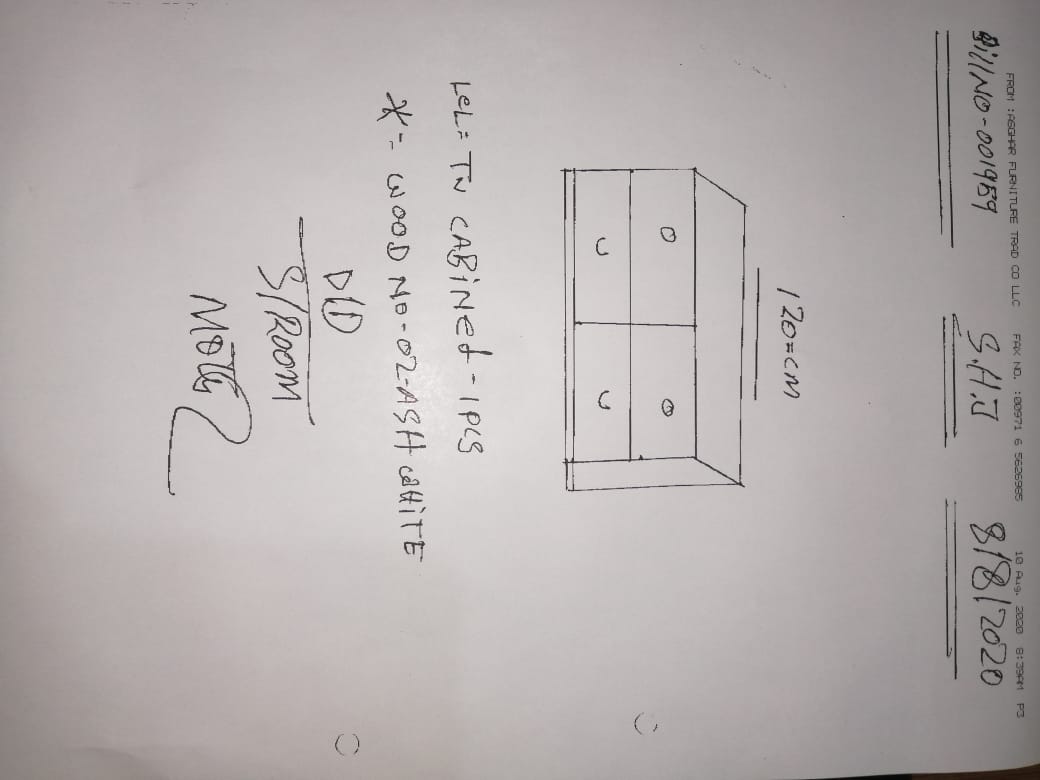 FROM :ASGHAR FURNITURE TRAD CO LLC FAX NO. :00971 6 5626985 10 Aug. 2020 8:39AM P3
BillNO-001989 S.H.J 8/8/2020
120=CM
LCL= TV CABiNEt-1PCS
*= WOOD NO-02-ASH WHiTE
D/D
S/ROOM